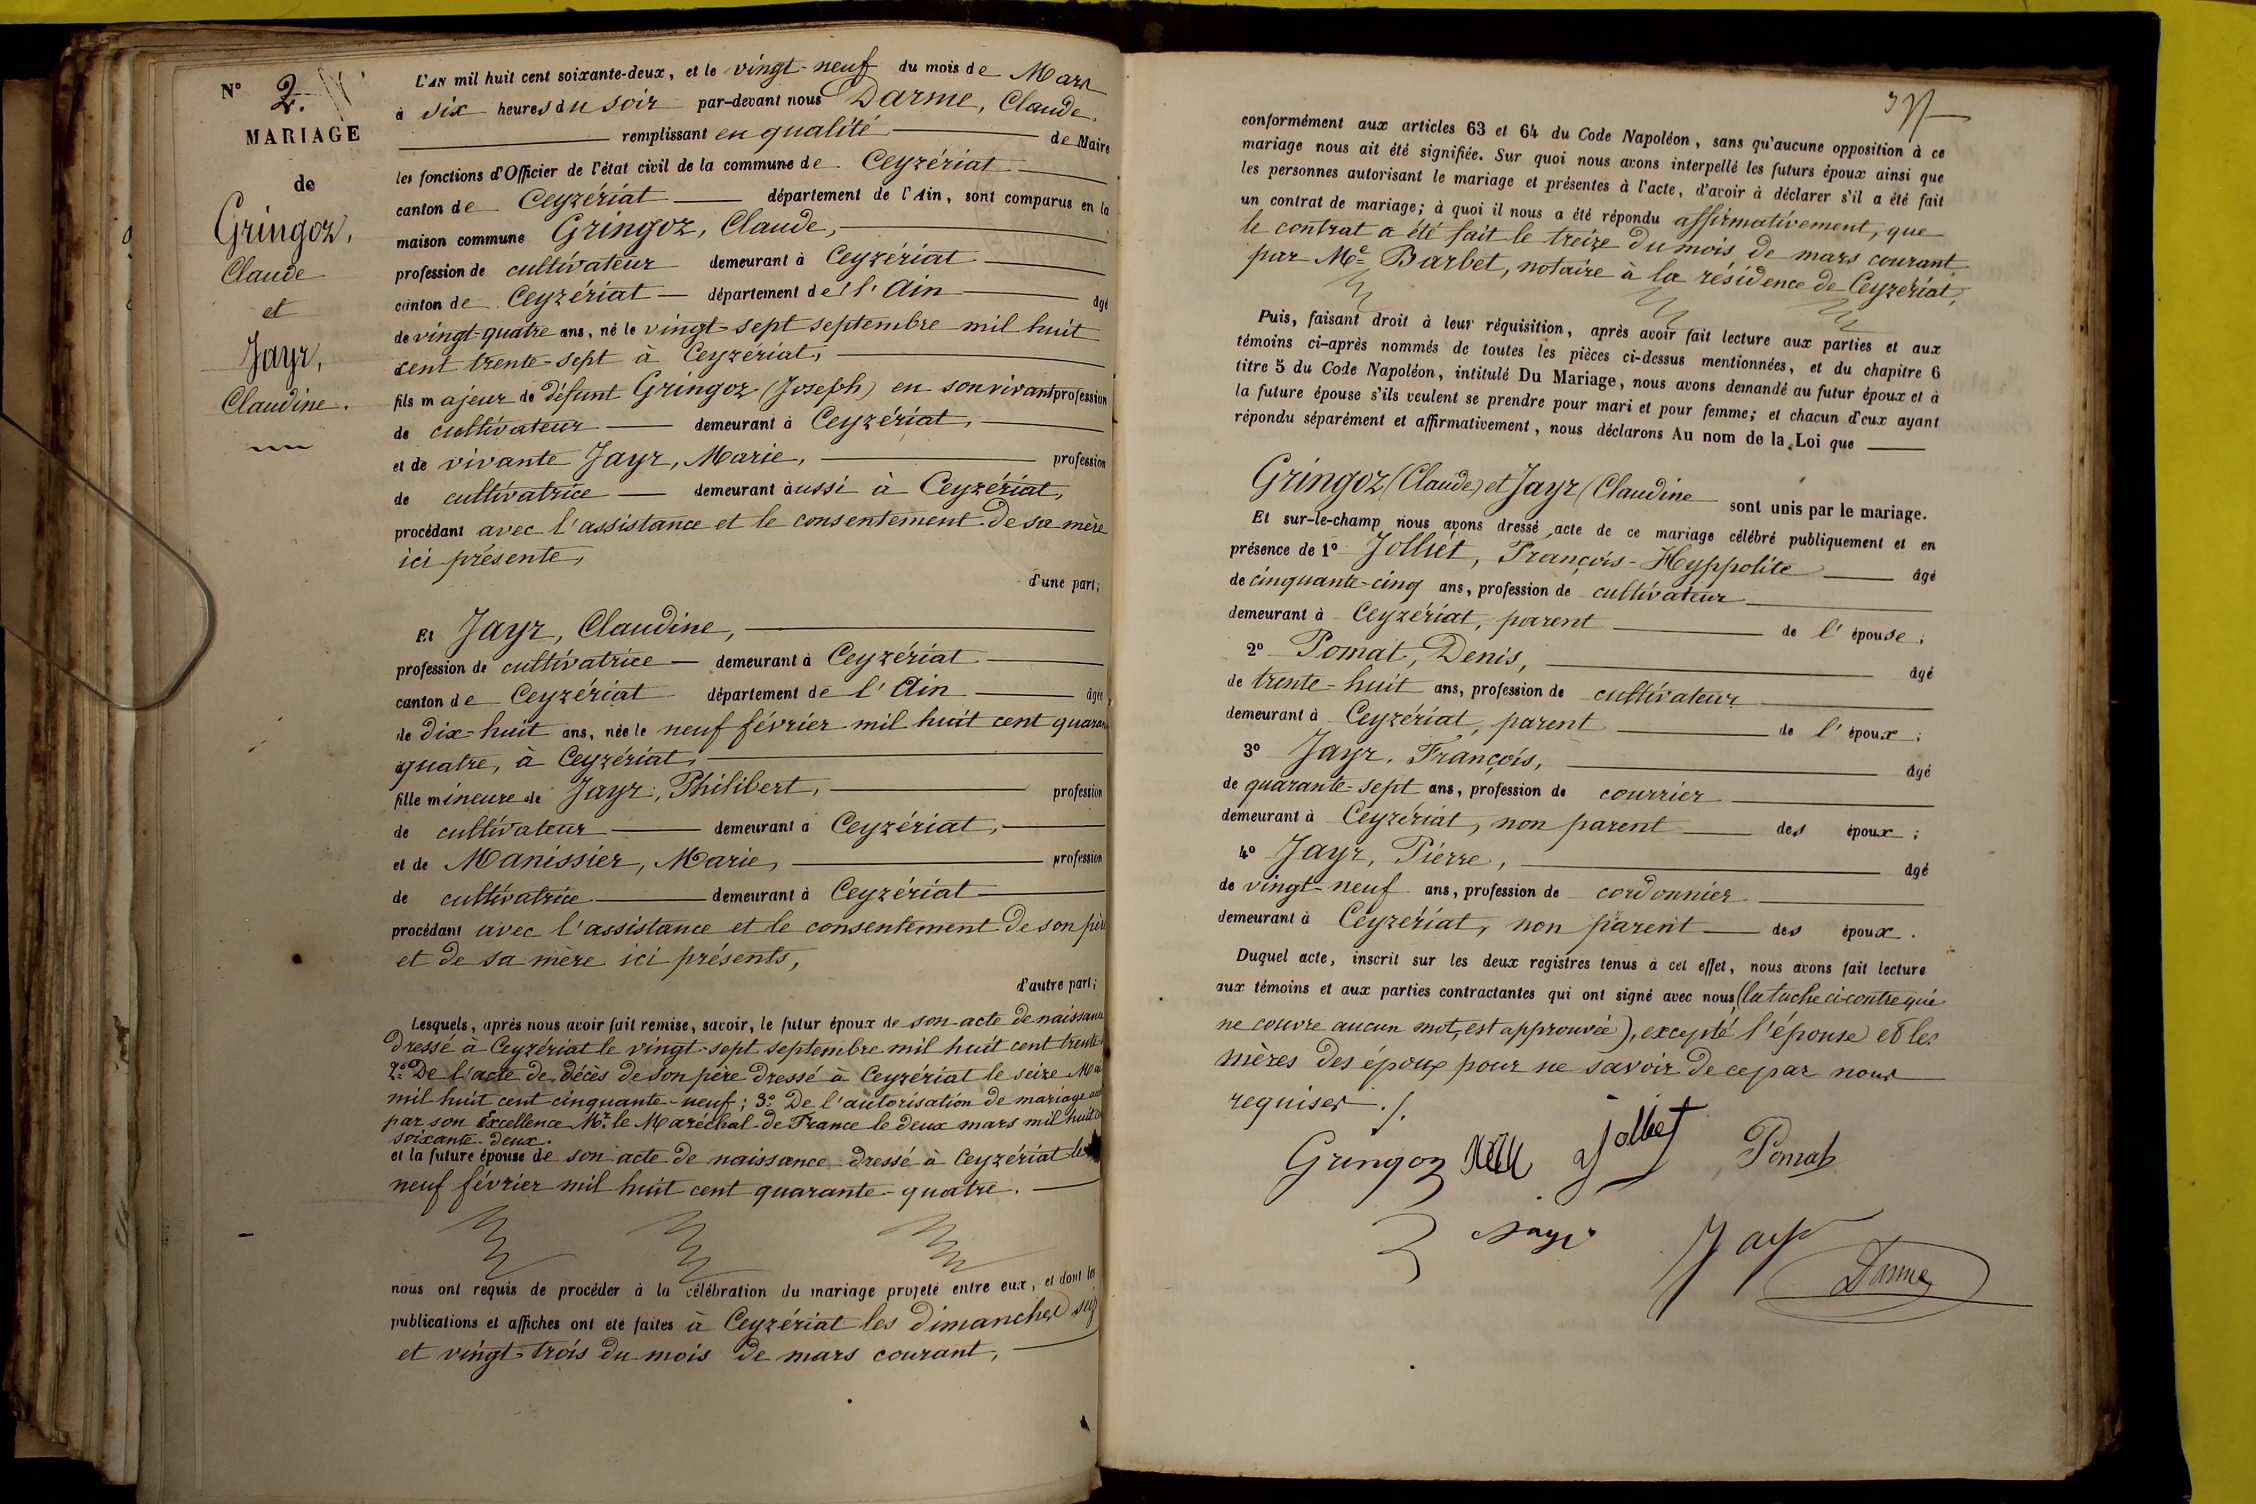 N° 2.
MARIAGE
de
Gringoz,
Claude
et
Jayr,
Claudine.
L'AN mil huit cent soixante-deux, et le vingt-neuf du mois de Mars
à six heures du soir par-devant nous Darme, Claude,
remplissant en qualité de Maire
les fonctions d'Officier de l'état civil de la commune de Ceyzériat
canton de Ceyzériat département de l'Ain, sont comparus en la
maison commune Gringoz, Claude,
profession de cultivateur demeurant à Ceyzériat
canton de Ceyzériat département de l'Ain âgé
de vingt-quatre ans, né le vingt-sept septembre mil huit
cent trente-sept à Ceyzériat,
fils majeur de défunt Gringoz (Joseph) en son vivant profession
de cultivateur demeurant à Ceyzériat,
et de vivante Jayr, Marie, profession
de cultivatrice demeurant aussi à Ceyzériat,
procédant avec l'assistance et le consentement de sa mère
ici présente,
d'une part;
Et Jayr, Claudine,
profession de cultivatrice demeurant à Ceyzériat
canton de Ceyzériat département de l'Ain âgée
de dix-huit ans, née le neuf février mil huit cent quaran
quatre, à Ceyzériat,
fille mineure de Jayr, Philibert, profession
de cultivateur demeurant à Ceyzériat,
et de Manissier, Marie, profession
de cultivatrice demeurant à Ceyzériat
procédant avec l'assistance et le consentement de son père
et de sa mère ici présents,
d'autre part;
Lesquels, après nous avoir fait remise, savoir, le futur époux de son acte de naissance
dressé à Ceyzériat le vingt-sept septembre mil huit cent trente
2° De l'acte de décès de son père dressé à Ceyzériat le seize
mil huit cent cinquante-neuf; 3° De l'autorisation de mariage
par son Excellence Mr. le Maréchal de France le deux mars mil huit
soixante-deux.
et la future épouse de son acte de naissance dressé à Ceyzériat le
neuf février mil huit cent quarante-quatre.
nous ont requis de procéder à la célébration du mariage projeté entre eux, et dont les
publications et affiches ont été faites à Ceyzériat les dimanches seize
et vingt-trois du mois de mars courant,
conformément aux articles 63 et 64 du Code Napoléon, sans qu'aucune opposition à ce
mariage nous ait été signifiée. Sur quoi nous avons interpellé les futurs époux ainsi que
les personnes autorisant le mariage et présentes à l'acte, d'avoir à déclarer s'il a été fait
un contrat de mariage; à quoi il nous a été répondu affirmativement, que
le contrat a été fait le treize du mois de mars courant
par Me Barbet, notaire à la résidence de Ceyzériat,
Puis, faisant droit à leur réquisition, après avoir fait lecture aux parties et aux
témoins ci-après nommés de toutes les pièces ci-dessus mentionnées, et du chapitre 6
titre 5 du Code Napoléon, intitulé Du Mariage, nous avons demandé au futur époux et à
la future épouse s'ils veulent se prendre pour mari et pour femme; et chacun d'eux ayant
répondu séparément et affirmativement, nous déclarons Au nom de la Loi que
Gringoz (Claude) et Jayr (Claudine sont unis par le mariage.
Et sur-le-champ nous avons dressé acte de ce mariage célébré publiquement et en
présence de 1° Jolliet, François-Hyppolite âgé
de cinquante-cinq ans, profession de cultivateur
demeurant à Ceyzériat, parent de l'épouse;
2° Pomat, Denis, âgé
de trente-huit ans, profession de cultivateur
demeurant à Ceyzériat, parent de l'époux;
3° Jayr, François, âgé
de quarante-sept ans, profession de courrier
demeurant à Ceyzériat, non parent des époux;
4° Jayr, Pierre, âgé
de vingt-neuf ans, profession de cordonnier
demeurant à Ceyzériat, non parent des époux.
Duquel acte, inscrit sur les deux registres tenus à cet effet, nous avons fait lecture
aux témoins et aux parties contractantes qui ont signé avec nous (la tache ci-contre qui
ne couvre aucun mot, est approuvée), excepté l'épouse et les
mères des époux pour ne savoir de ce par nous
requises ./.
Gringoz Jolliet Pomat
Jayr Jayr
Darme